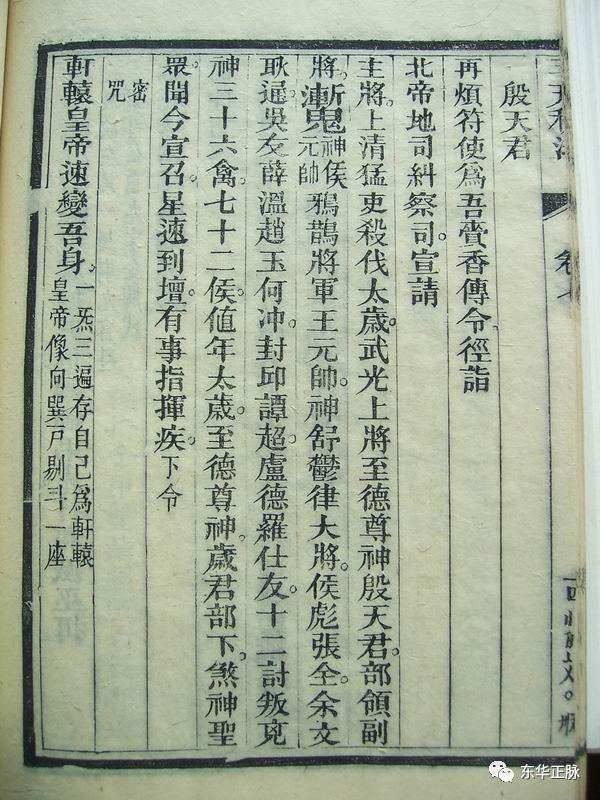 卷七
殷天君
再煩符使爲吾賫香傳令。徑詣
北帝地司糾察司。宣請
主將上清猛吏殺伐太歲。武光上將至德尊神殷天君。部領副
將。神侯元帥鴉鵲將軍王元帥。神舒鬱律大將。侯彪張全。余文
耿通。吳友薛溫。趙玉何冲。封邱譚超。盧德羅仕友。十二討叛兇
神三十六禽。七十二侯。值年太歲。至德尊神。歲君部下。煞神聖
眾聞今宣召。星速到壇。有事指揮疾。下令
密咒
軒轅皇帝速變吾身。一炁三遍存自己爲軒轅
皇帝像向巽戸剔斗一座
东华正脉